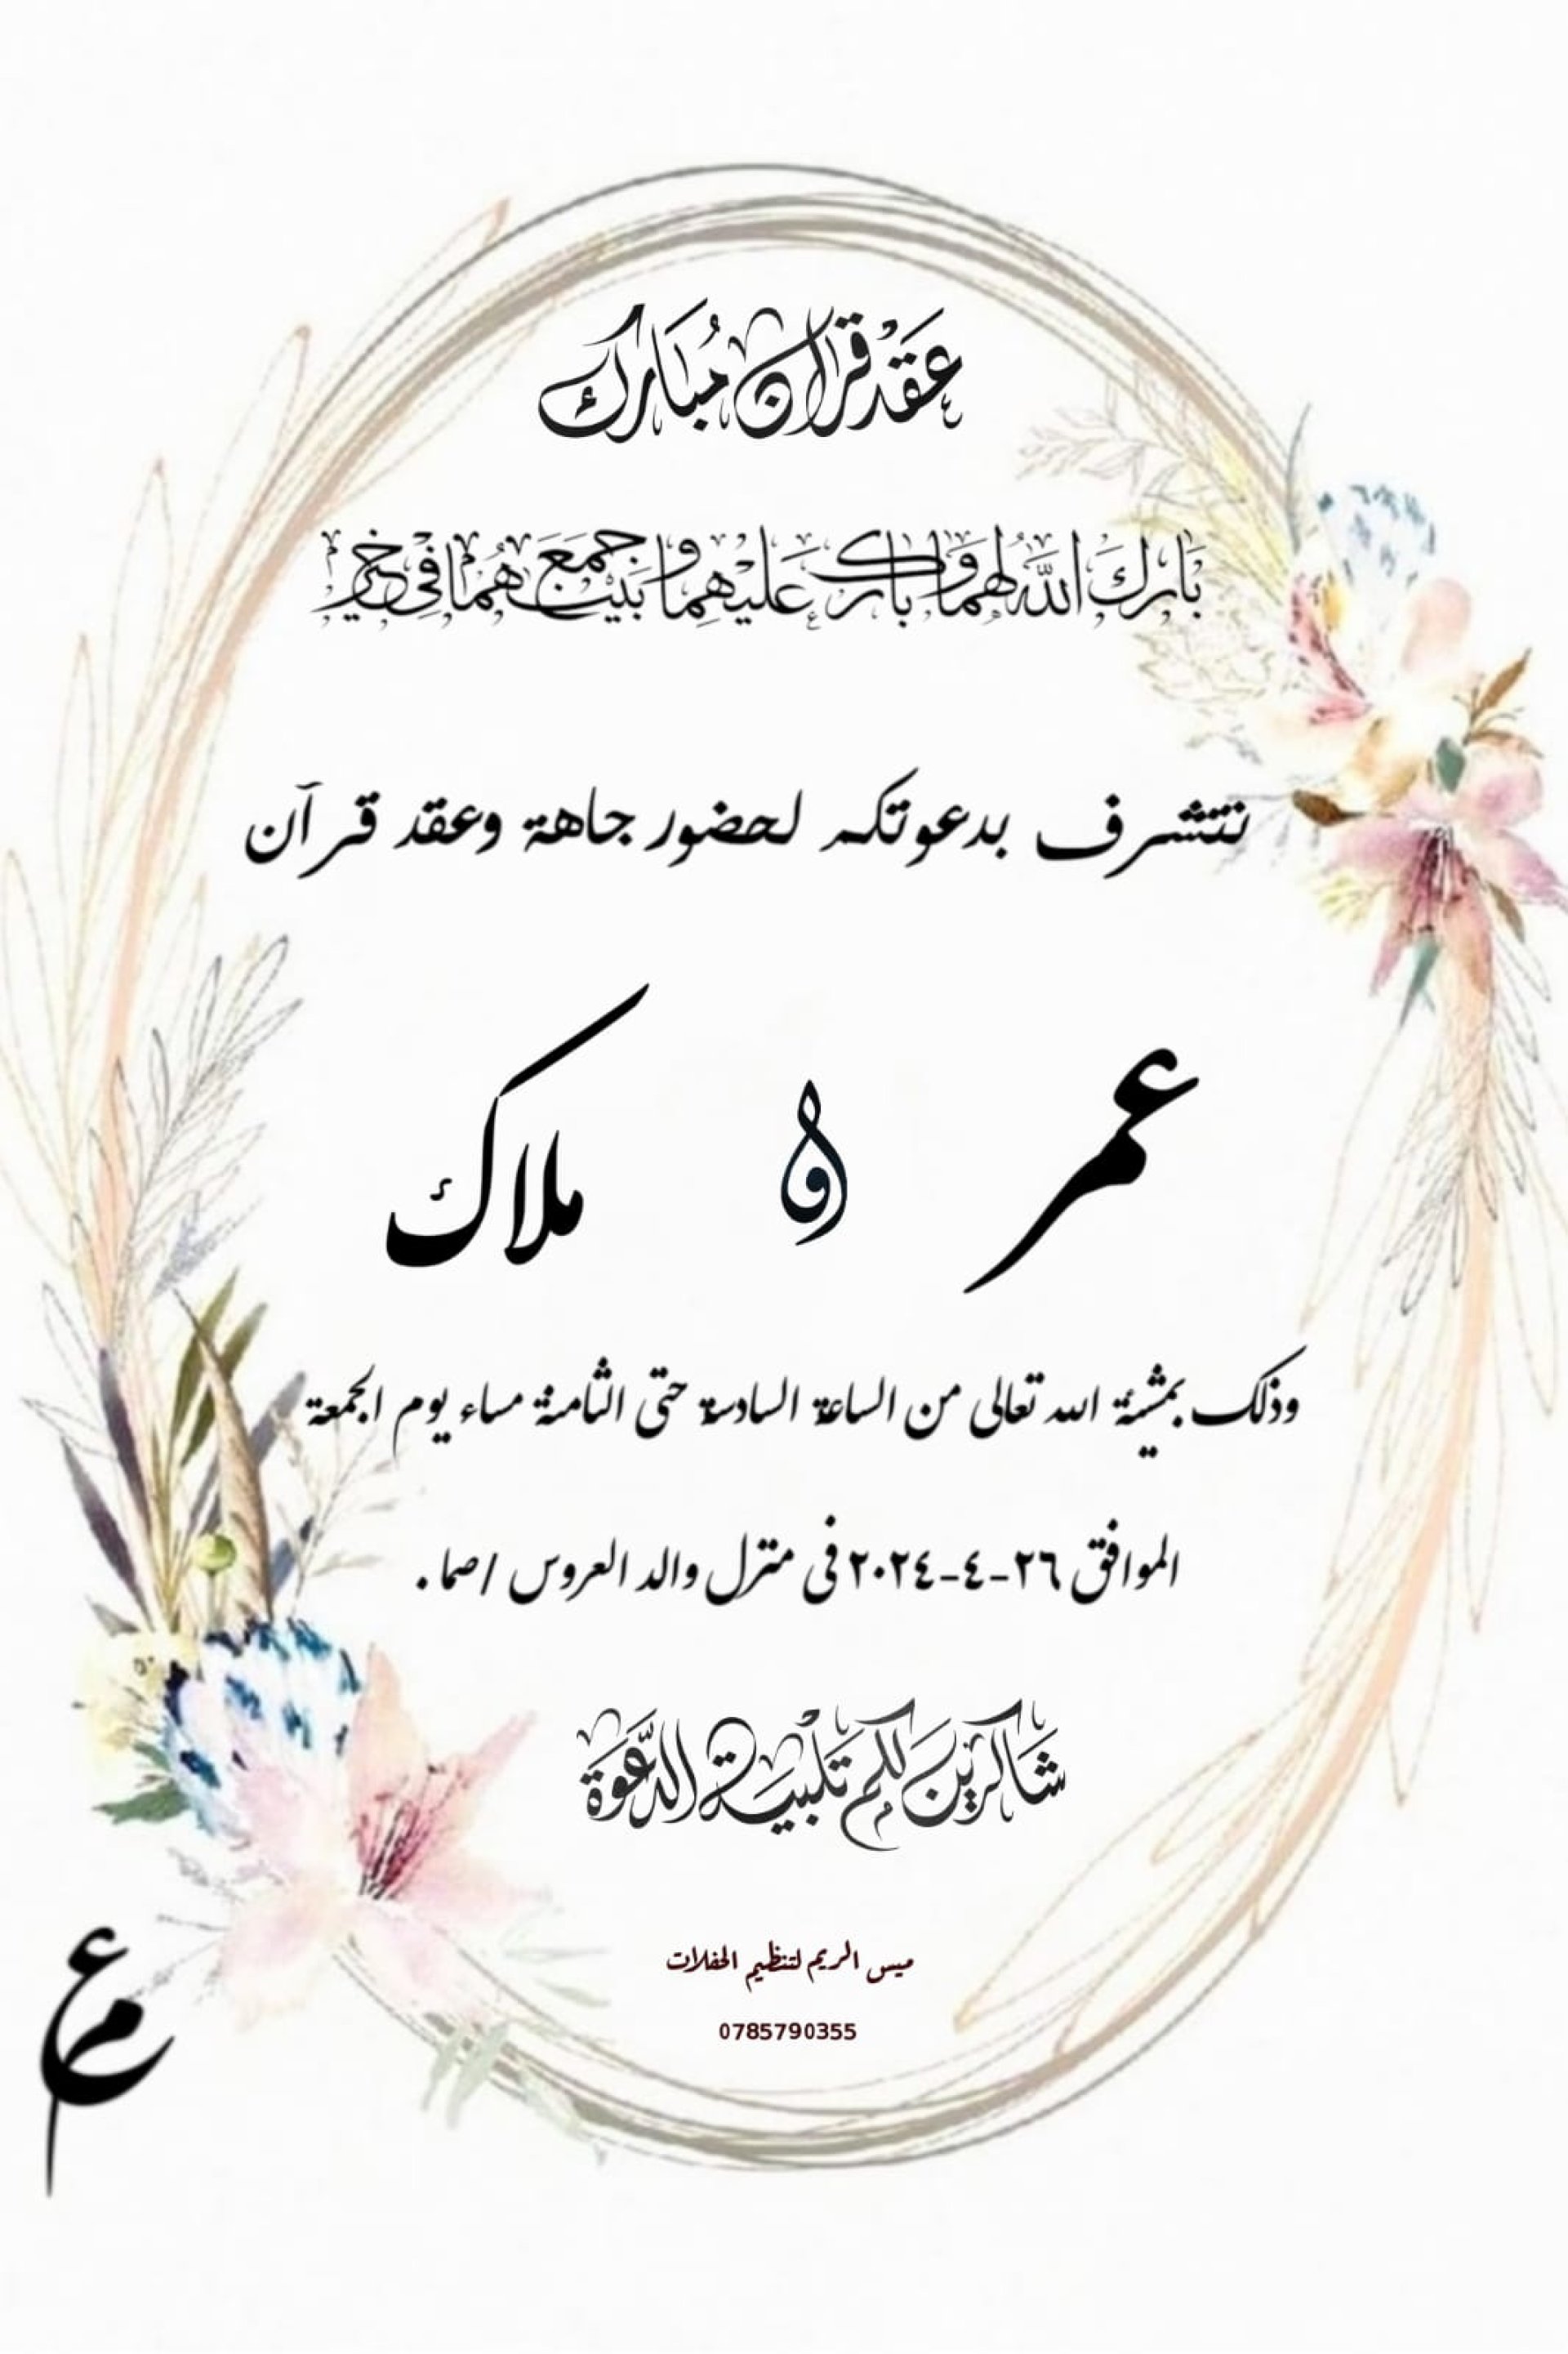 عَقْد قِران مُبَارك
بَارك اللَّه لهُما وَبارك عَليْهِما وَجمَعَ بَيْنهُمَا فِي خَيْر
نتشرف بدعوتكم لحضور جاهة وعقد قرآن
عمر و ملاك
وذلك بمشيئة الله تعالى من الساعة السادسة حتى الثامنة مساء يوم الجمعة
الموافق ٢٦-٤-٢٠٢٤ في منزل والد العروس /صما.
شَاكرين لكم تَلْبية الدَّعْوَة
ميس الريم لتنظيم الحفلات
0785790355
ع م